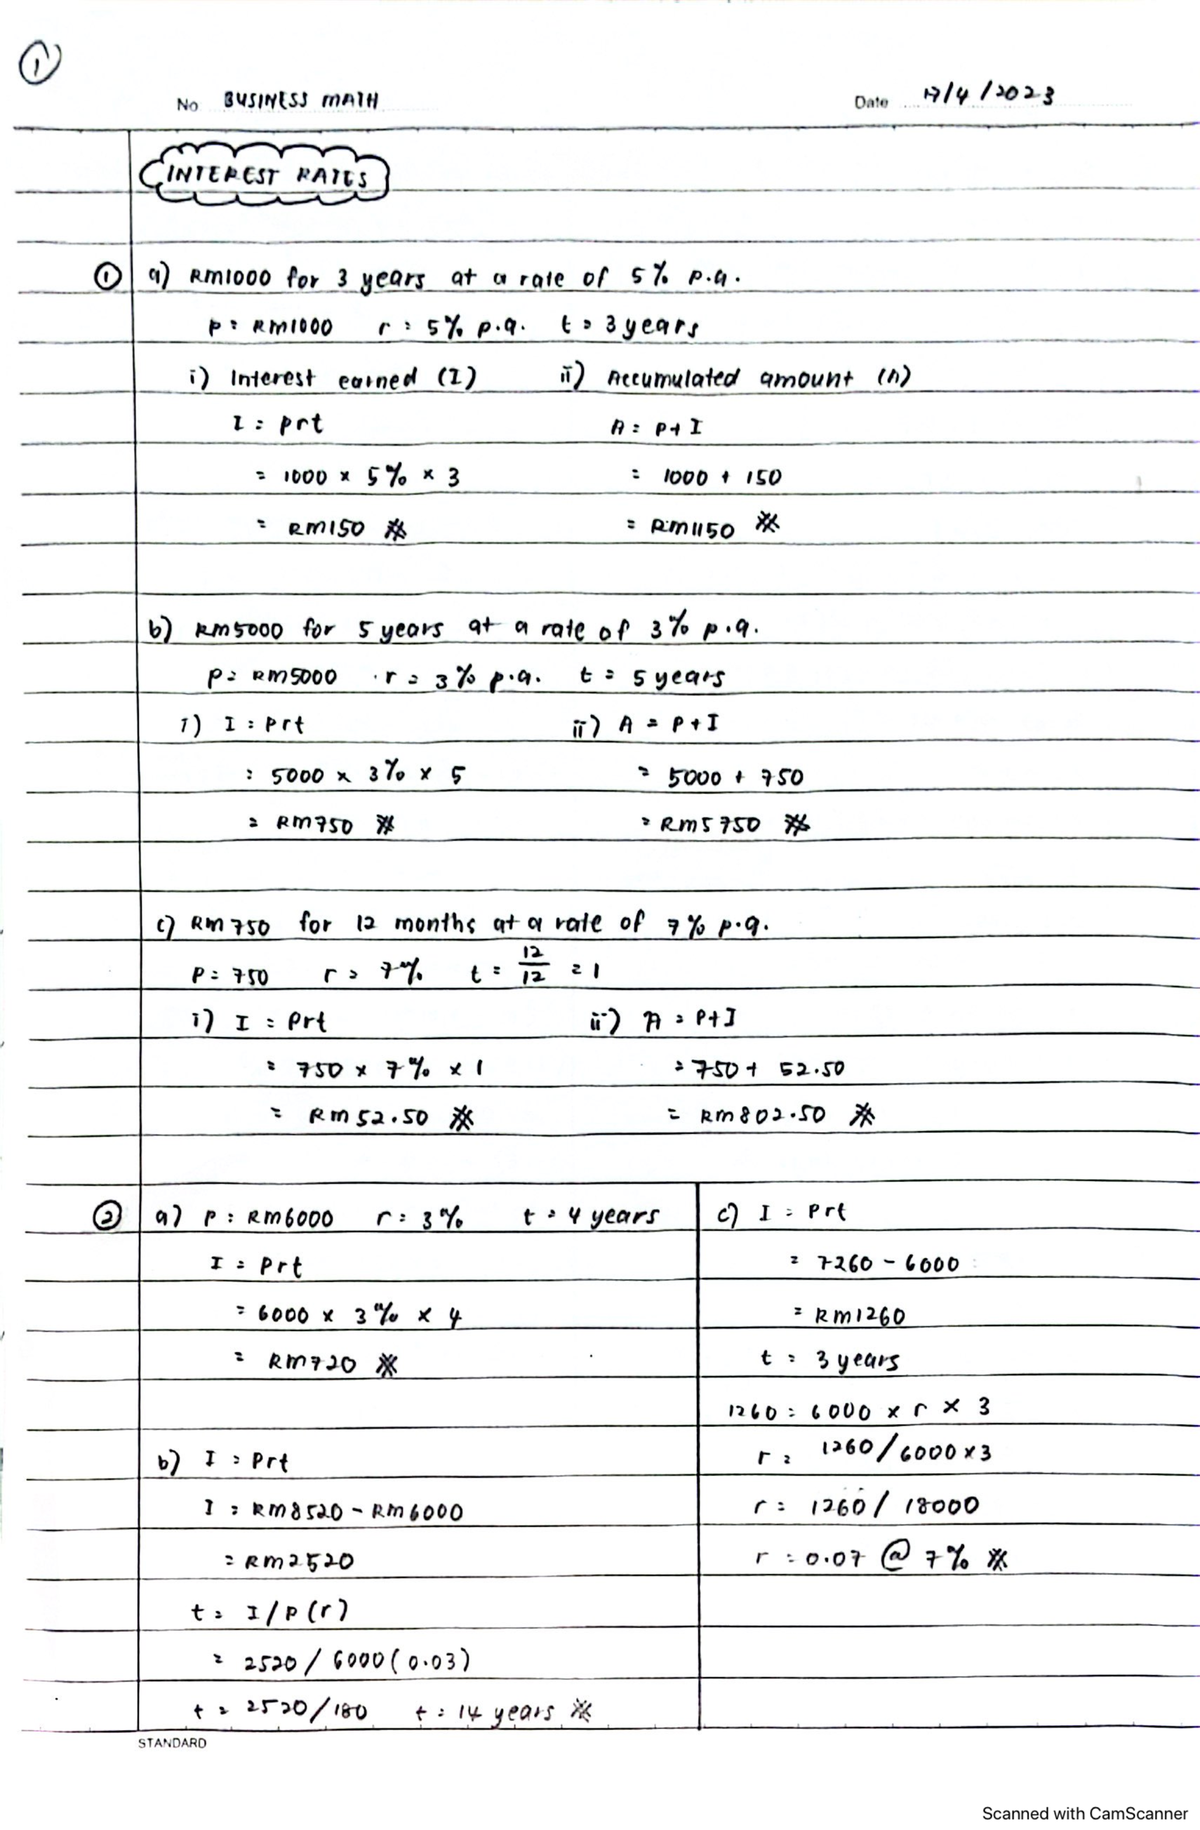 1
No BUSINESS MATH Date 17/4/2023
INTEREST RATES
1 a) RM1000 for 3 years at a rate of 5% p.a.
P = RM1000 r = 5% p.a. t = 3 years
i) Interest earned (I) ii) Accumulated amount (A)
I = prt A = P+I
= 1000 x 5% x 3 = 1000 + 150
= RM150 = RM1150
b) RM5000 for 5 years at a rate of 3% p.a.
P = RM5000 r = 3% p.a. t = 5 years
i) I = prt ii) A = P+I
= 5000 x 3% x 5 = 5000 + 750
= RM750 = RM5750
c) RM750 for 12 months at a rate of 7% p.a.
P = 750 r = 7% t = 12/12 = 1
i) I = Prt ii) A = P+I
= 750 x 7% x 1 = 750 + 52.50
= RM52.50 = RM802.50
2 a) P = RM6000 r = 3% t = 4 years
I = Prt
= 6000 x 3% x 4
= RM720
b) I = Prt
I = RM8520 - RM6000
= RM2520
t = I/P(r)
= 2520/6000(0.03)
t = 2520/180 t = 14 years
c) I = Prt
= 7260 - 6000
= RM1260
t = 3 years
1260 = 6000 x r x 3
r = 1260/6000x3
r = 1260/18000
r = 0.07 @ 7%
STANDARD
Scanned with CamScanner